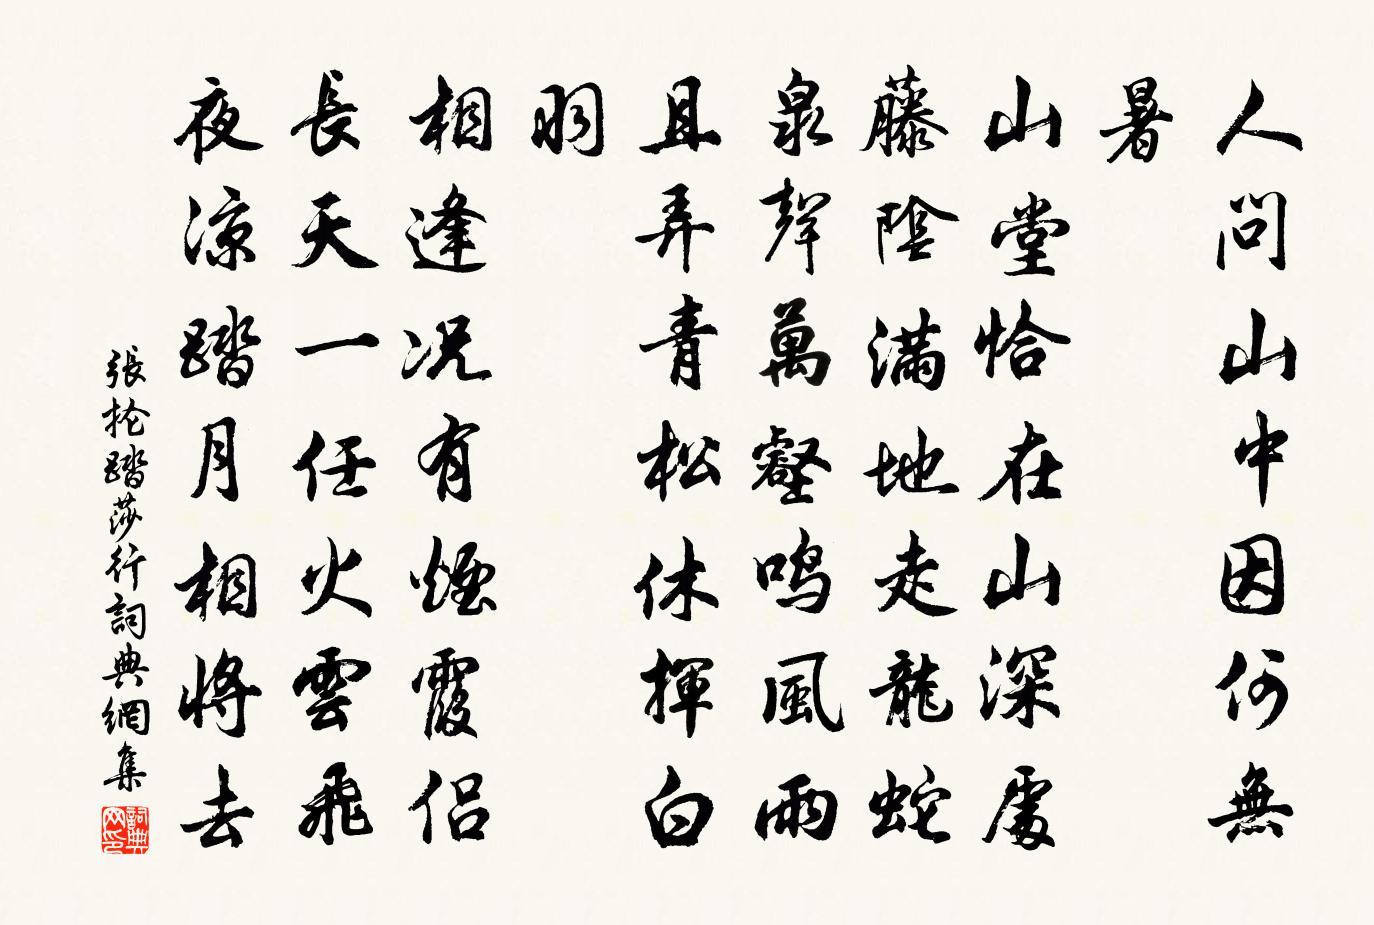 人問山中因何無
暑
山堂恰在山深處
藤陰滿地走龍蛇
泉聲萬壑鳴風雨
且弄青松休揮白
羽
相逢况有煙霞侶
長天一任火雲飛
夜涼踏月相將去
張掄踏莎行詞典網集
詞典
网印